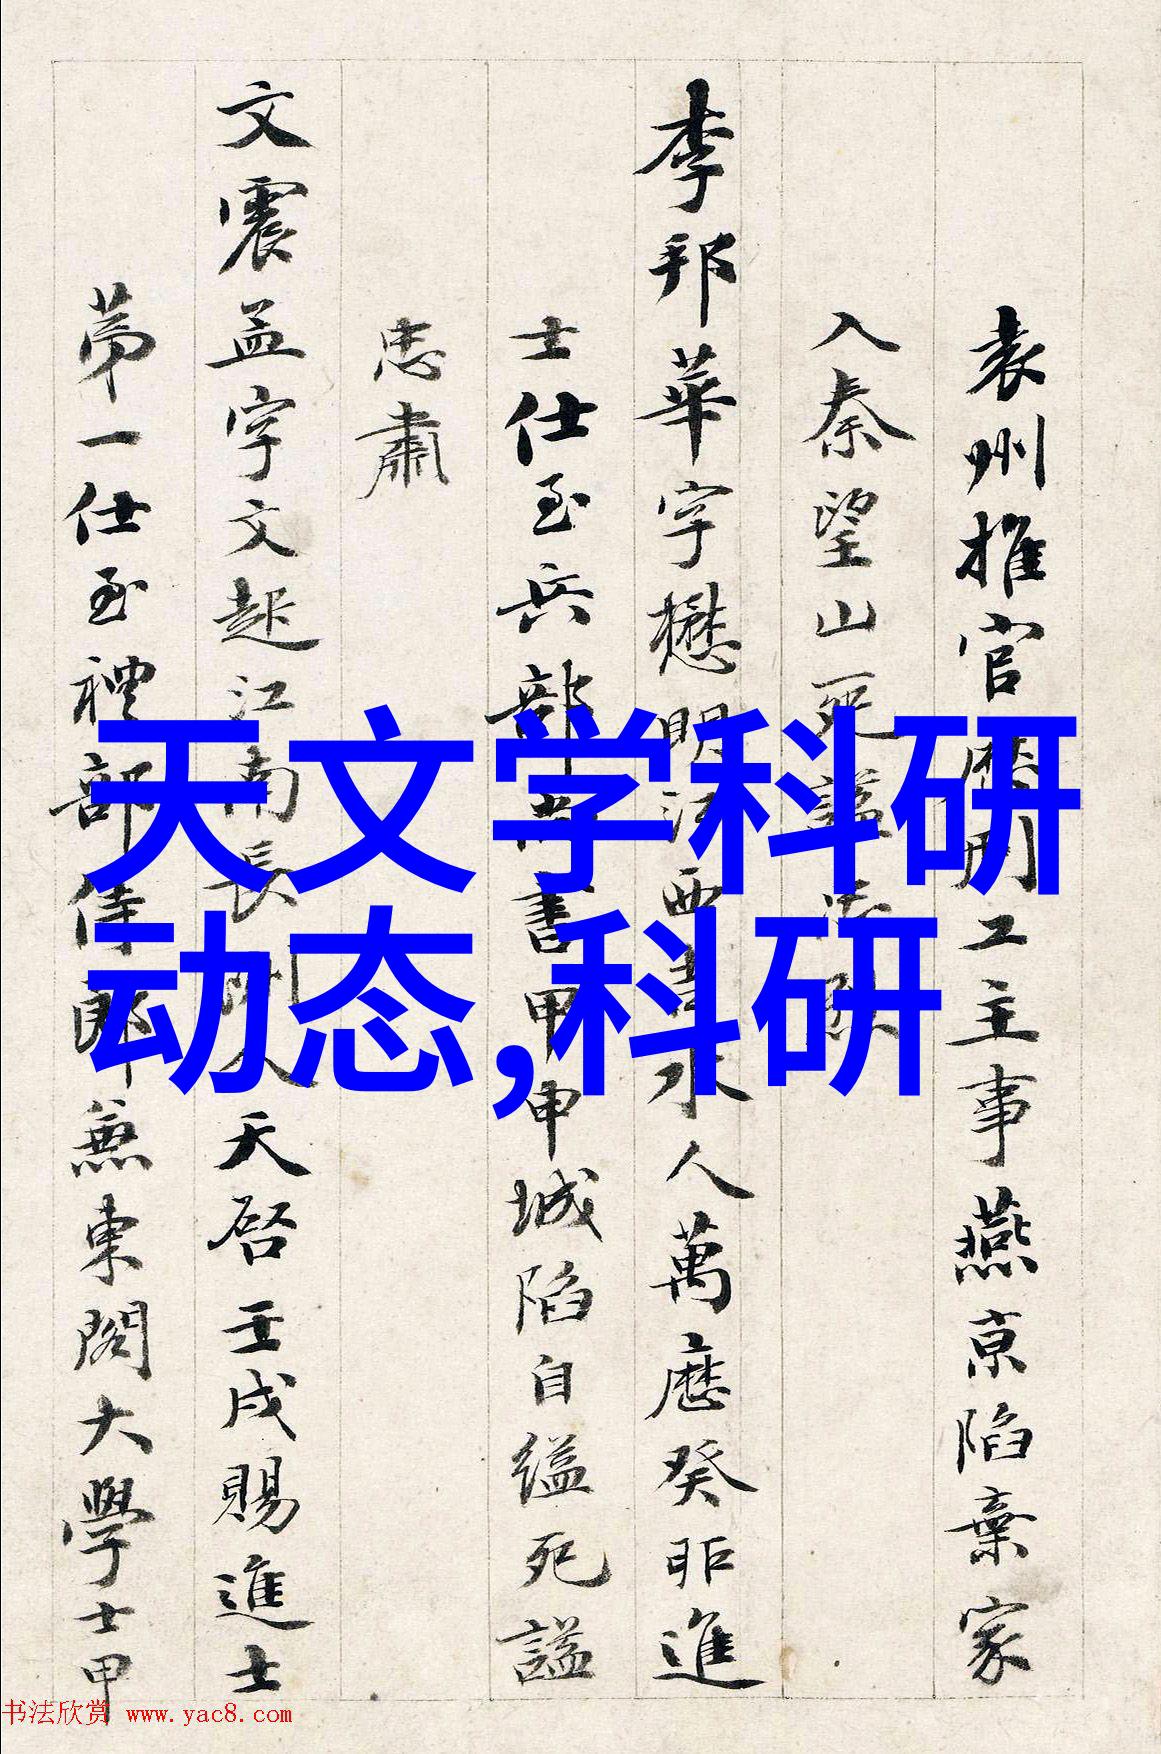 袁州推官 工主事燕京陷棄家
入秦望山死
李邦華字懋明江西 水人萬曆癸卯進
士仕至兵部尚書甲申城陷自縊死諡
忠肅
文震孟字文起江南長洲人天啓壬戌賜進士
第一仕至禮部侍郎兼東閣大學士甲
天文学科研
动态,科研
书法欣赏 www.yac8.com